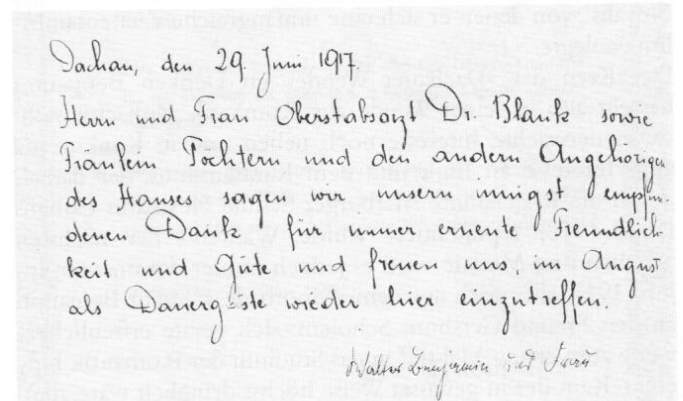 Dachau, den 29. Juni 1917.
Herrn und Frau Oberstabsarzt Dr. Blank sowie
Fräulein Töchtern und den andern Angehörigen
des Hauses sagen wir unsern innigst empfun-
denen Dank für immer erneute Freundlich-
keit und Güte und freuen uns, im August
als Dauergäste wieder hier einzutreffen.
Walter Benjamin und Frau